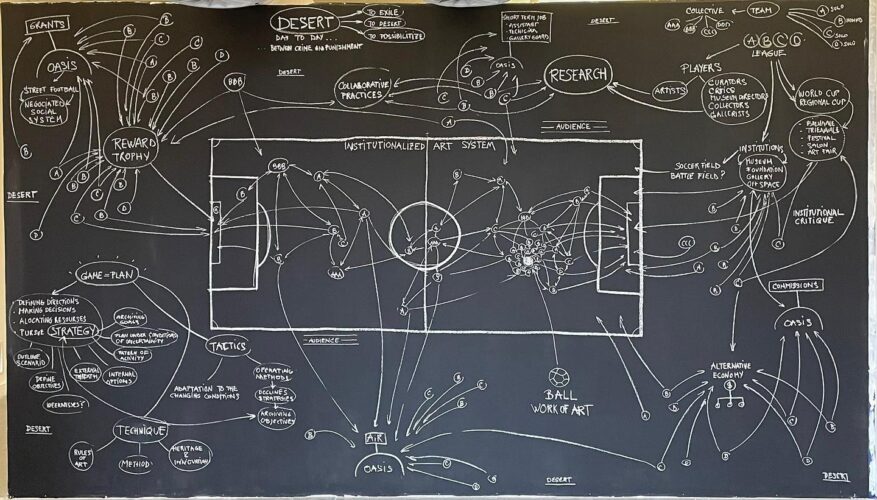 GRANTS
OASIS
STREET FOOTBALL
NEGOTIATED
SOCIAL
SYSTEM
REWARD
TROPHY
DESERT
DESERT
DAY TO DAY...
BETWEEN CRIME AND PUNISHMENT
TO EXILE
TO DESERT
DESERT
BBB
COLLABORATIVE
PRACTICES
SHORT TERM JOB
- ASSISTANT
OASIS
RESEARCH
DESERT
COLLECTIVE
TEAM
AAA
BBB
CCC
DDD
A SOLO
D SOLO
A B C D
LEAGUE
PLAYERS
ARTISTS
CURATORS
CRITICS
MUSEUM DIRECTORS
COLLECTORS
GALLERISTS
WORLD CUP
REGIONAL CUP
- BIENNALE
- TRIENNALE
- FESTIVAL
- SALON
- ART FAIR
AUDIENCE
INSTITUTIONALIZED ART SYSTEM
BBB
AAA
SOCCER FIELD
BATTLE FIELD?
INSTITUTIONS
MUSEUM
FOUNDATION
GALLERY
OFF SPACE
INSTITUTIONAL
CRITIQUE
CCC
COMMISSIONS
OASIS
GAME=PLAN
- DEFINING DIRECTIONS
- MAKING DECISIONS
STRATEGY
ARCHIVING
GOALS
PLAN UNDER CONDITIONS
OF UNCERTAINTY
PATTERN OF
ACTIVITY
OUTLINE
SCENARIO
DEFINE
OBJECTIVES
INTERNAL
OPTIONS
WEAKNESSES?
DESERT
TACTICS
ADAPTATION TO THE
CHANGING CONDITIONS
OPERATING
METHODS
STRATEGIES
ARCHIVING
OBJECTIVES
TECHNIQUE
RULES
OF
ART
METHOD
HERITAGE
&
INNOVATION
AUDIENCE
BALL
WORK OF ART
ALTERNATIVE
ECONOMY
$
AIR
OASIS
DESERT
DESERT